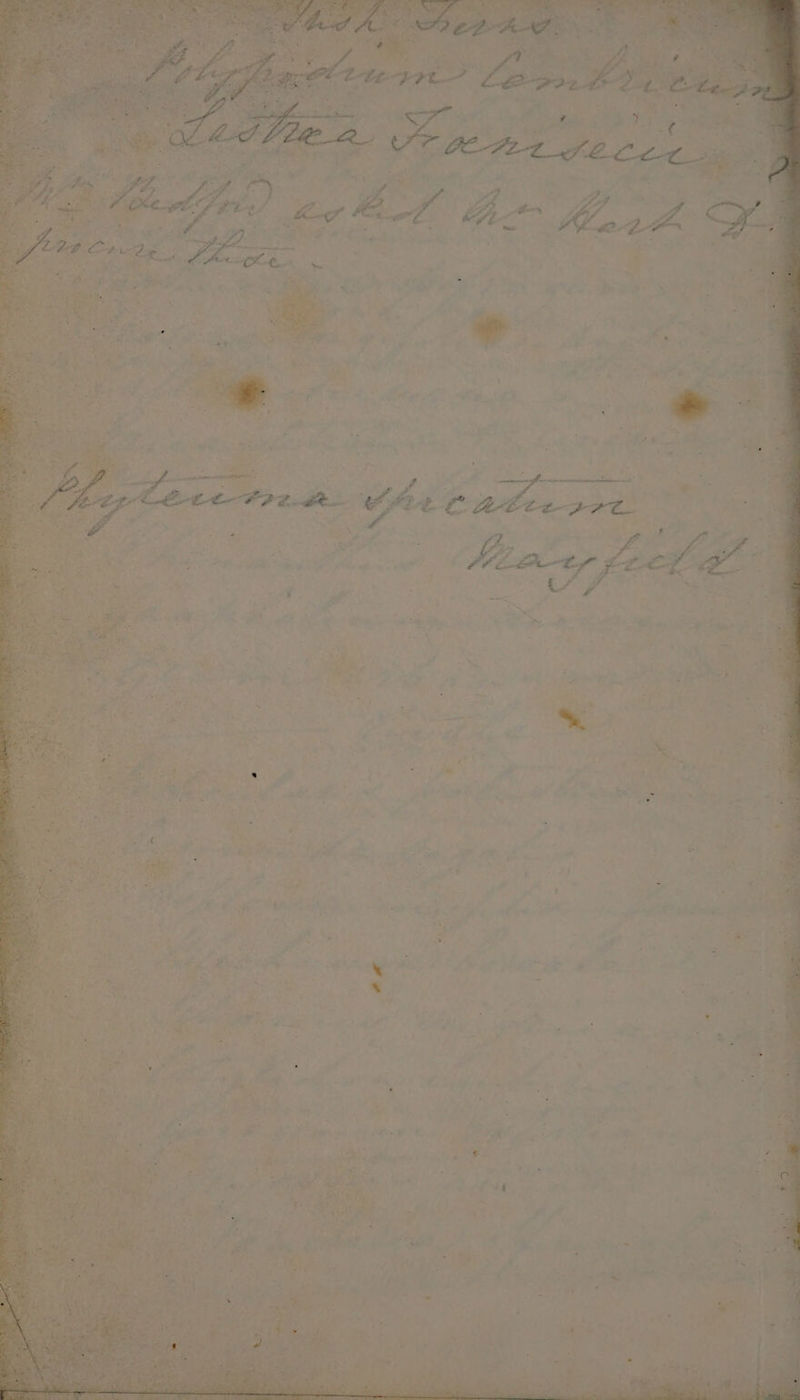 Irish Ferns.
Polypodium Cambricum
Lastrea Foenisecii
Mr Redford asked Mr to
procure these.
Phyteuma spicatum
Mayfield